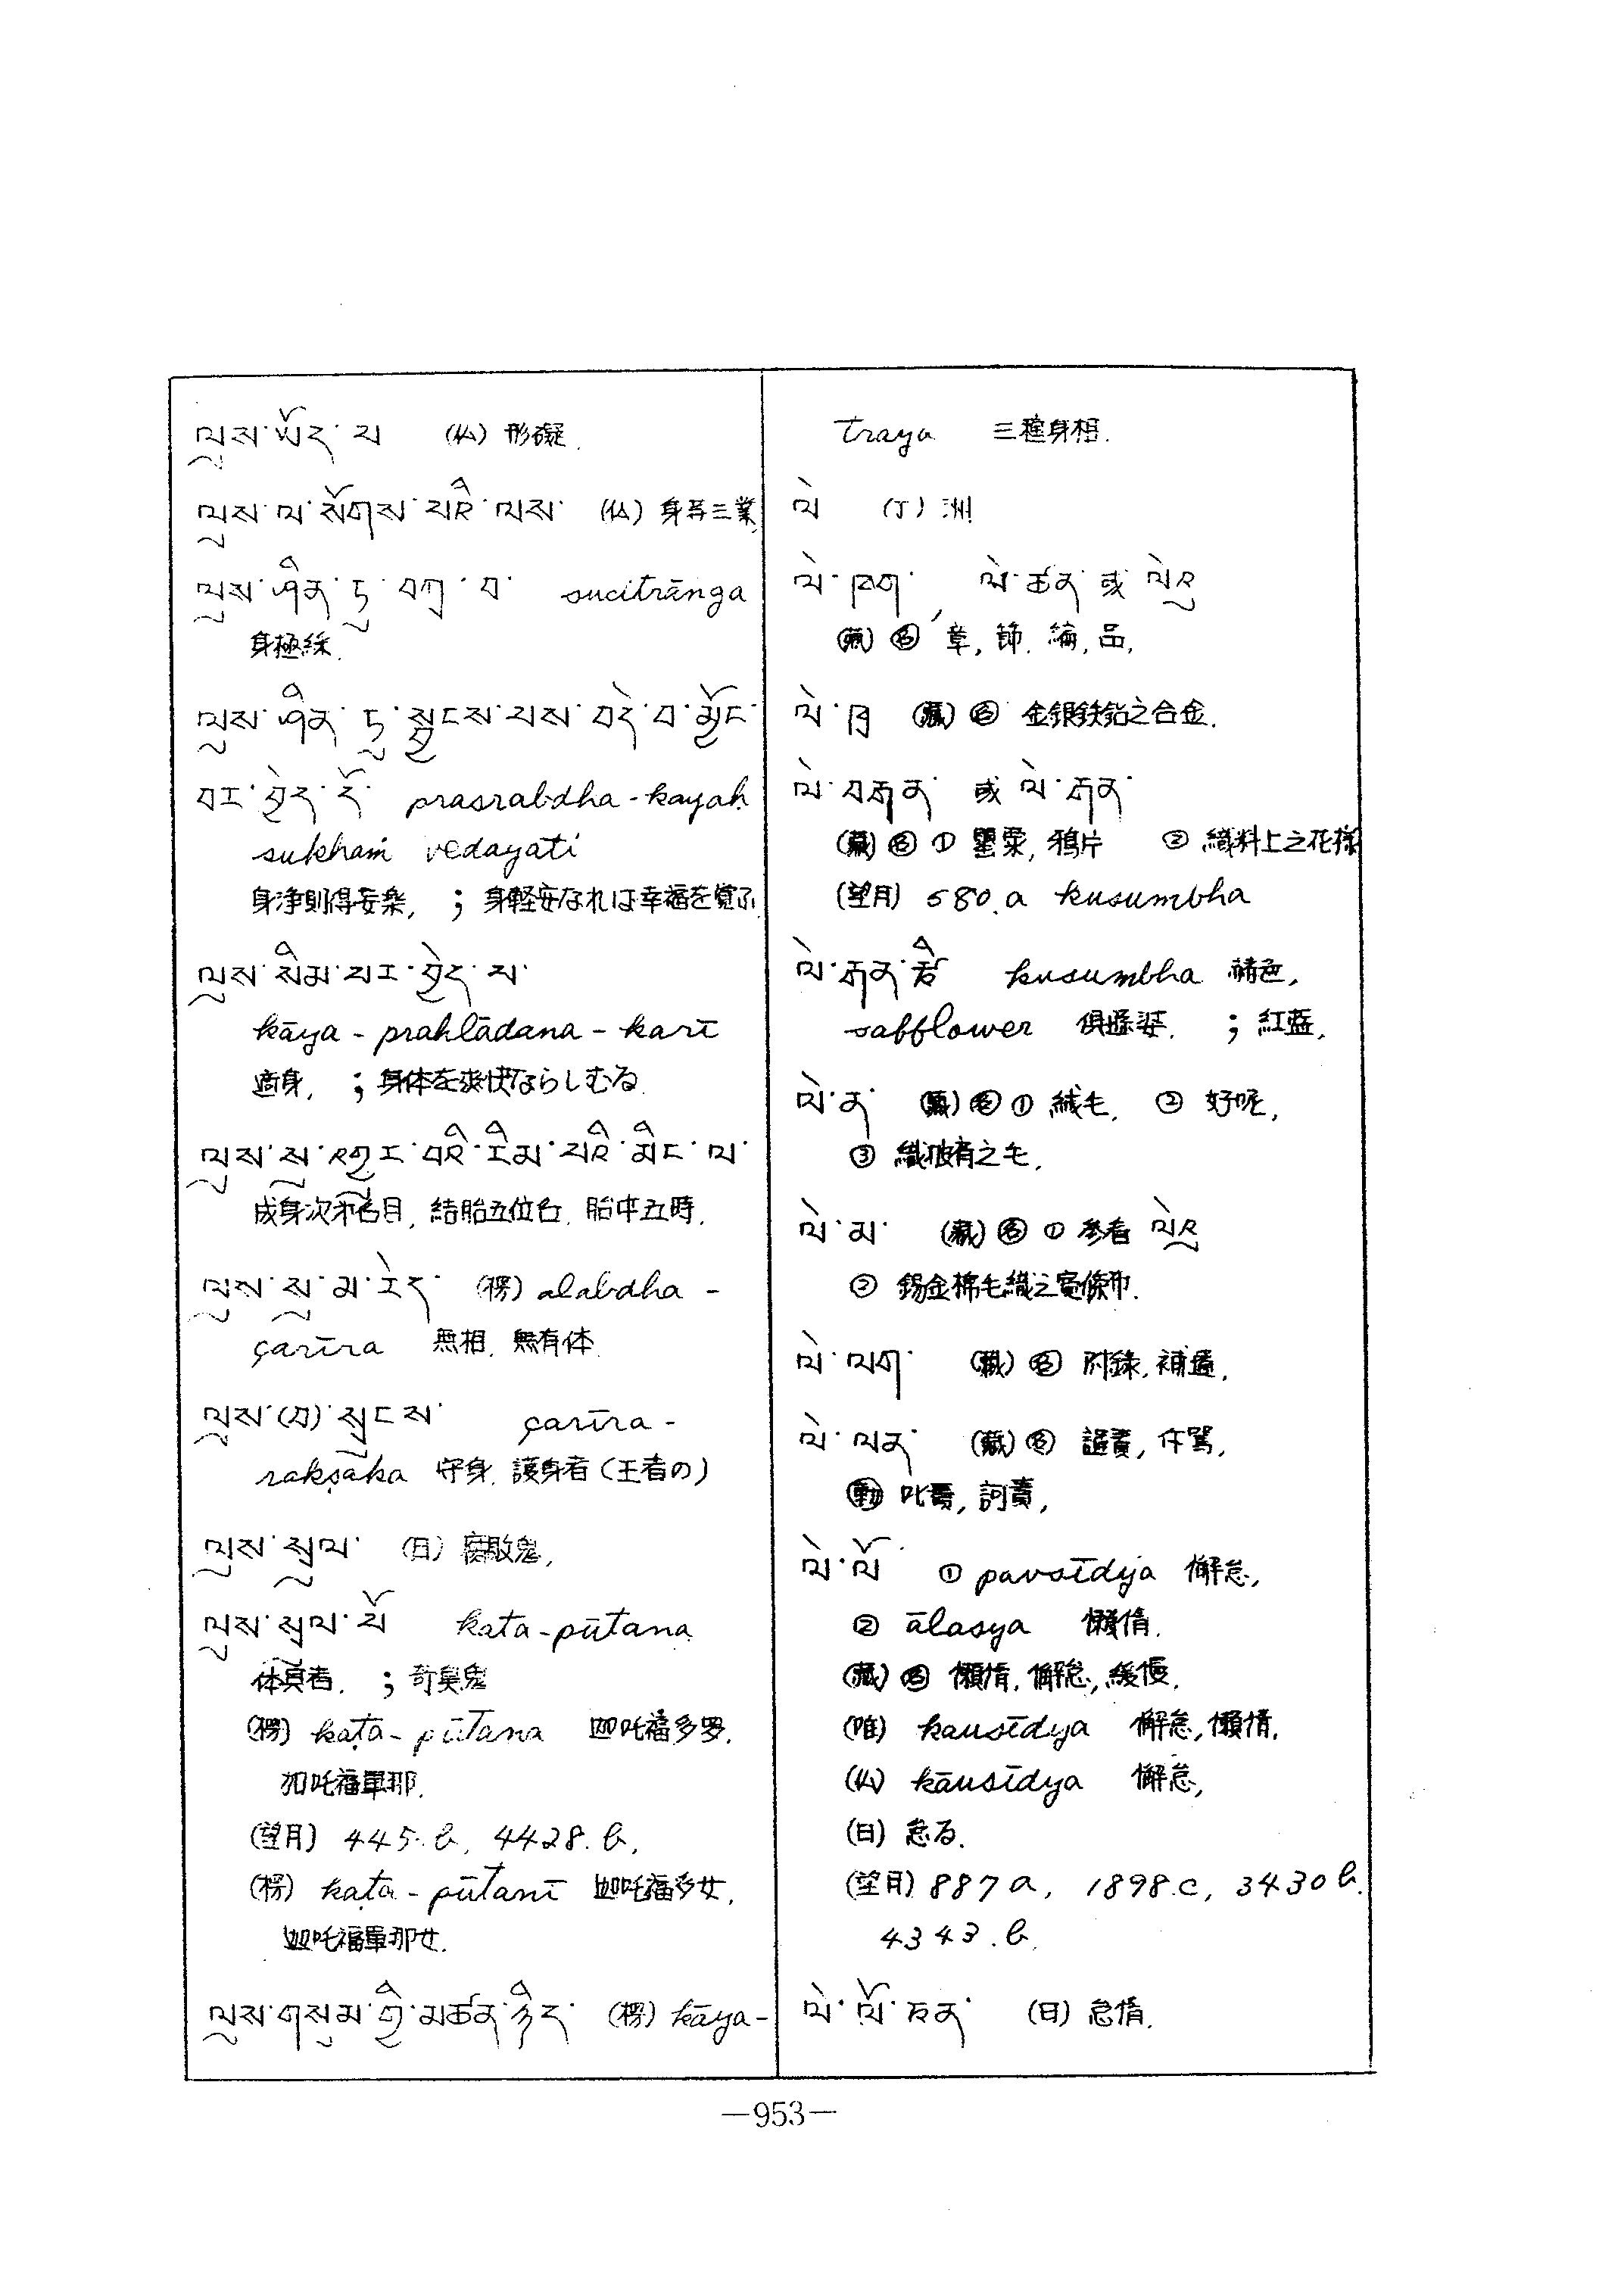 ལུས་ཡོད་པ (仏) 形礙.
ལུས་ལ་སོགས་པའི་ལས་ (仏) 身等三業
ལུས་ཤིན་ཏུ་བཀྲ་བ་ sucitrānga
身極綵.
ལུས་ཤིན་ཏུ་སྦྱངས་པས་བདེ་བ་མྱོང་
བར་བྱེད་དོ་ prasrabdha-kayaḥ
sukhaṁ vedayati
身浄則得妄樂, ; 身軽安なれは幸福を覚ふ
ལུས་སིམ་པར་བྱེད་པ་
kāya-prahlādana-karī
適身, ; 身体を爽快ならしむる.
ལུས་སུ་འགྱུར་བའི་རིམ་པའི་མིང་ལ་
成身次第名目, 結胎五位名. 胎中五時.
ལུས་སུ་མ་རེད་ (楞) alabdha-
çarīra 無相. 無有体.
ལུས་(བ)་སྲུངས་ çarīra-
rakṣāka 守身. 護身者 (王者の)
ལུས་སྲུལ་ (日) 腐敗鬼,
ལུས་སྲུལ་པོ kata-pūtana
体臭者. ; 奇臭鬼
(楞) kaṭa-pūtana 迦吒福多罗.
加吒福単那.
(望月) 445.b, 4428.b,
(楞) kaṭa-pūtanī 迦吒福多女,
迦吒福單那女.
ལུས་གསུམ་གྱི་མཚན་ཉིད་ (楞) kāya-
traya 三種身相.
ལེ (丁) 洲
ལེ་ཁག་, ལེ་ཚན་ 或 ལེའུ
(藏) 名 章, 節. 編, 品,
ལེ་ (藏) 名 金銀鉄鉛之合金.
ལེ་བརྒན་ 或 ལེ་རྒན་
(藏) 名 ① 罌粟, 鴉片 ② 織料上之花様
(望月) 580.a kusumbha
ལེ་རྒན་རྩི kusumbha 橘色,
safflower 俱遜婆. ; 紅藍,
ལེ་ན་ (藏) 名 ① 絨毛, ② 好呢,
③ 織披肩之毛,
ལེ་མ་ (藏) 名 ① 參看 ལེའུ
② 錫金棉毛織之寛條布.
ལེ་ལག་ (藏) 名 附錄, 補遺,
ལེ་ལན་ (藏) 名 譴責, 仵罵,
動 叱責, 訶責,
ལེ་ལོ་ ① pavsīdya 懈怠,
② ālasya 懶惰.
(藏) 名 懶惰, 懈怠, 緩慢.
(唯) kausīdya 懈怠, 懶惰,
(仏) kāusīdya 懈怠,
(日) 怠る.
(望月) 887a, 1898.c, 3430b.
4343.b.
ལེ་ལོ་ཅན་ (日) 怠惰.
—953—